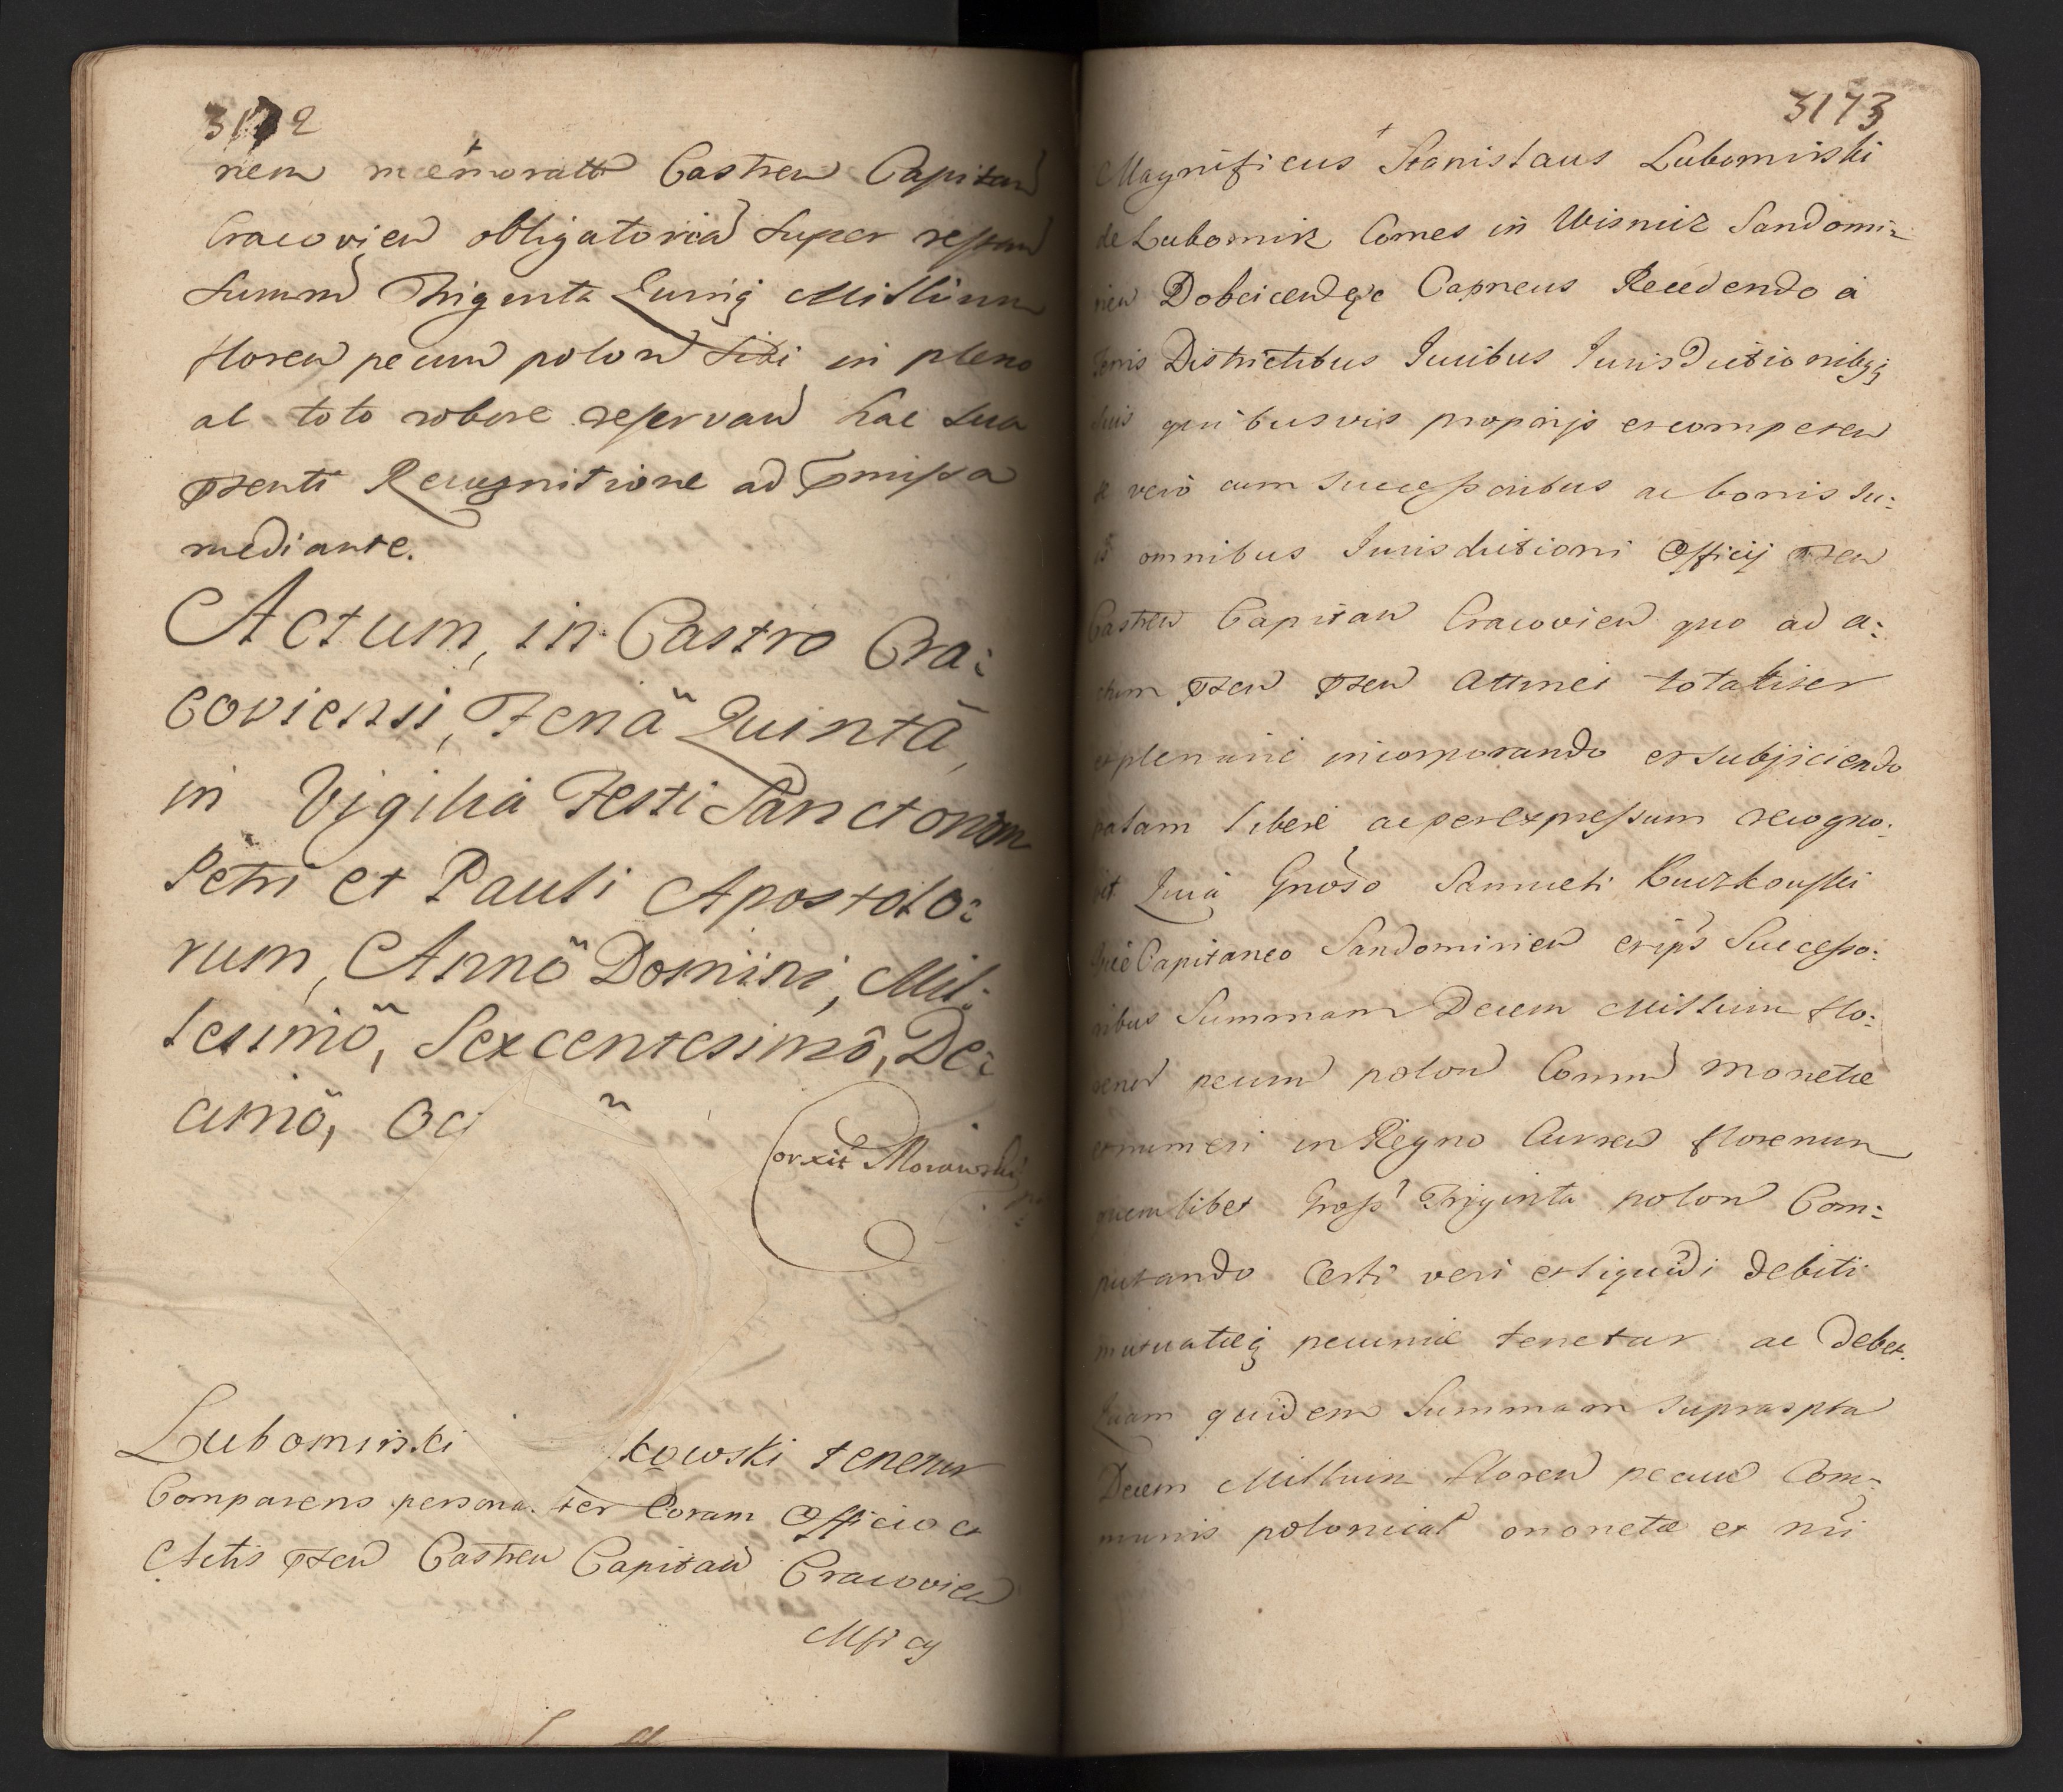 3172
nem memoratt Castren Capitan
Cracovien obligatoria super restan
Summa Triginta Quinq Millium
floren pecun polon sibi in pleno
ac toto robore reservan hac sua
pnti Recognitione ad pmissa
mediante.
Actum, in Castro Cra:
coviensi, Feriâ Quintâ,
in Vigilia Festi Sanctorum
Petri et Pauli Apostolo:
rum, Annô Domini, Mil:
lesimô, Sexcentesimô, De:
cimô, Oc
Corxit Morawski
Lubomirski kowski tenetur
Comparens persona ter Coram Officio et
Actis pnten Castren Capitan Cracovien
Mficg
3173
Magnificus Stanislaus Lubomirski
de Lubomirz Comes in Wisnicz Sandomi:
rien Dobcicenqe Capneus Recedendo à
Terris Districtibus Juribus Jurisdictionibq
suis quibusvis proprijs et competen
se verò cum successoribus ac bonis su:
is omnibus Jurisdictioni Officij pnten
Castren Capitan Cracovien quo ad a:
ctum pnten pnten attinet totaliter
et plenariè incorporando et subjiciendo
palam liberè ac per expressum recogno:
vit Quia Gnoso Samueli Kuczkowski
Vice Capitaneo Sandomirien et ips Successo:
ribus Summam Decem Millium flo:
renor pecun polon Commun monetæ
et numeri in Regno Curren florenum
quemlibet Gross Triginta polon Com:
putando Certi veri et liquidi debiti
mutuatæq pecuniæ tenetur ac debet.
Quam quidem Summam suprasptam
Decem Millium floren pecun Com:
munis polonical monetæ et nri